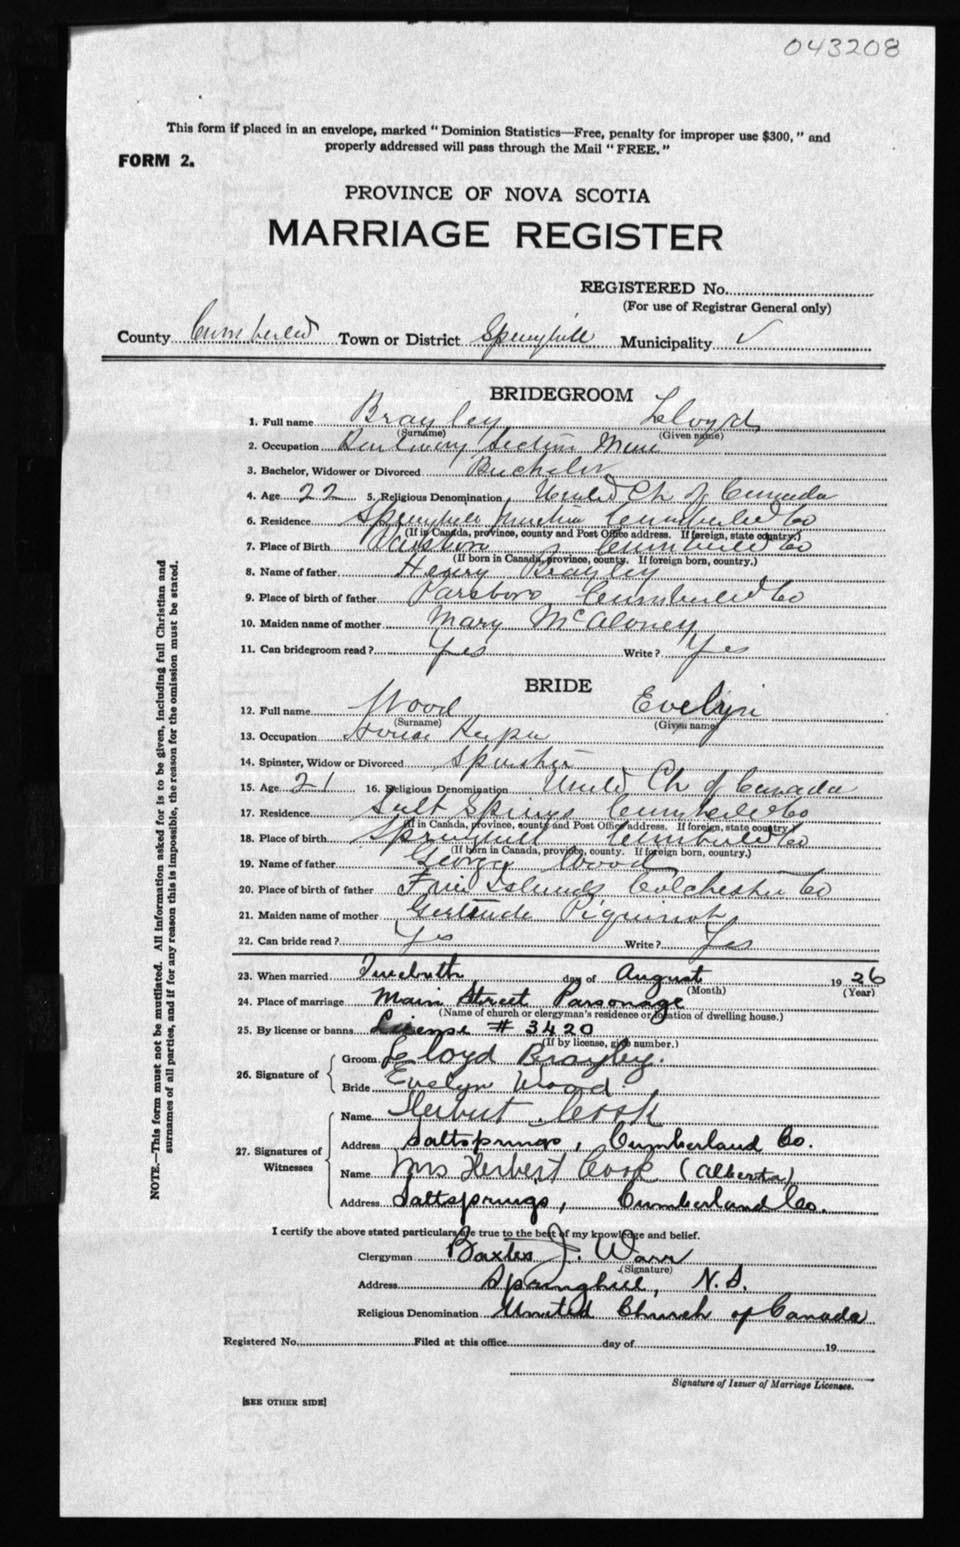 043208
This form if placed in an envelope, marked "Dominion Statistics—Free, penalty for improper use $300," and
properly addressed will pass through the Mail "FREE."
FORM 2.
PROVINCE OF NOVA SCOTIA
MARRIAGE REGISTER
REGISTERED No.
(For use of Registrar General only)
County Cumberland Town or District Springhill Municipality ✓
BRIDEGROOM
1. Full name Brayley Lloyd
(Surname) (Given name)
2. Occupation Railway Section Man
3. Bachelor, Widower or Divorced Bachelor
4. Age 22 5. Religious Denomination United Ch of Canada
6. Residence Springhill Junction Cumberland Co
(If in Canada, province, county and Post Office address. If foreign, state country.)
7. Place of Birth Parsboro Cumberland Co
(If born in Canada, province, county. If foreign born, country.)
8. Name of father Henry Brayley
9. Place of birth of father Parsboro Cumberland Co
10. Maiden name of mother Mary McAloney
11. Can bridegroom read? Yes Write? Yes
BRIDE
12. Full name Wood Evelyn
(Surname) (Given name)
13. Occupation House Keeper
14. Spinster, Widow or Divorced Spinster
15. Age 21 16. Religious Denomination United Ch of Canada
17. Residence Salt Springs Cumberland Co
(If in Canada, province, county and Post Office address. If foreign, state country.)
18. Place of birth Springhill Cumberland Co
(If born in Canada, province, county. If foreign born, country.)
19. Name of father George Wood
20. Place of birth of father Five Islands Colchester Co
21. Maiden name of mother Gertrude
22. Can bride read? Yes Write? Yes
23. When married Twelvth day of August 1926
(Month) (Year)
24. Place of marriage Main Street Parsonage
(Name of church or clergyman's residence or location of dwelling house.)
25. By license or banns License # 3420
(If by license, give number.)
26. Signature of Groom Lloyd Brayley.
Bride Evelyn Wood
27. Signatures of Witnesses
Name Herbert Cook
Address Saltsprings, Cumberland Co.
Name Mrs Herbert Cook (Alberta)
Address Saltsprings, Cumberland Co.
I certify the above stated particulars are true to the best of my knowledge and belief.
Clergyman Baxter J. Warr
(Signature)
Address Springhill, N.S.
Religious Denomination United Church of Canada
Registered No. Filed at this office day of 19
Signature of Issuer of Marriage Licenses.
[SEE OTHER SIDE]
NOTE.—This form must not be mutilated. All information asked for is to be given, including full Christian and
surnames of all parties, and if for any reason this is impossible, the reason for the omission must be stated.